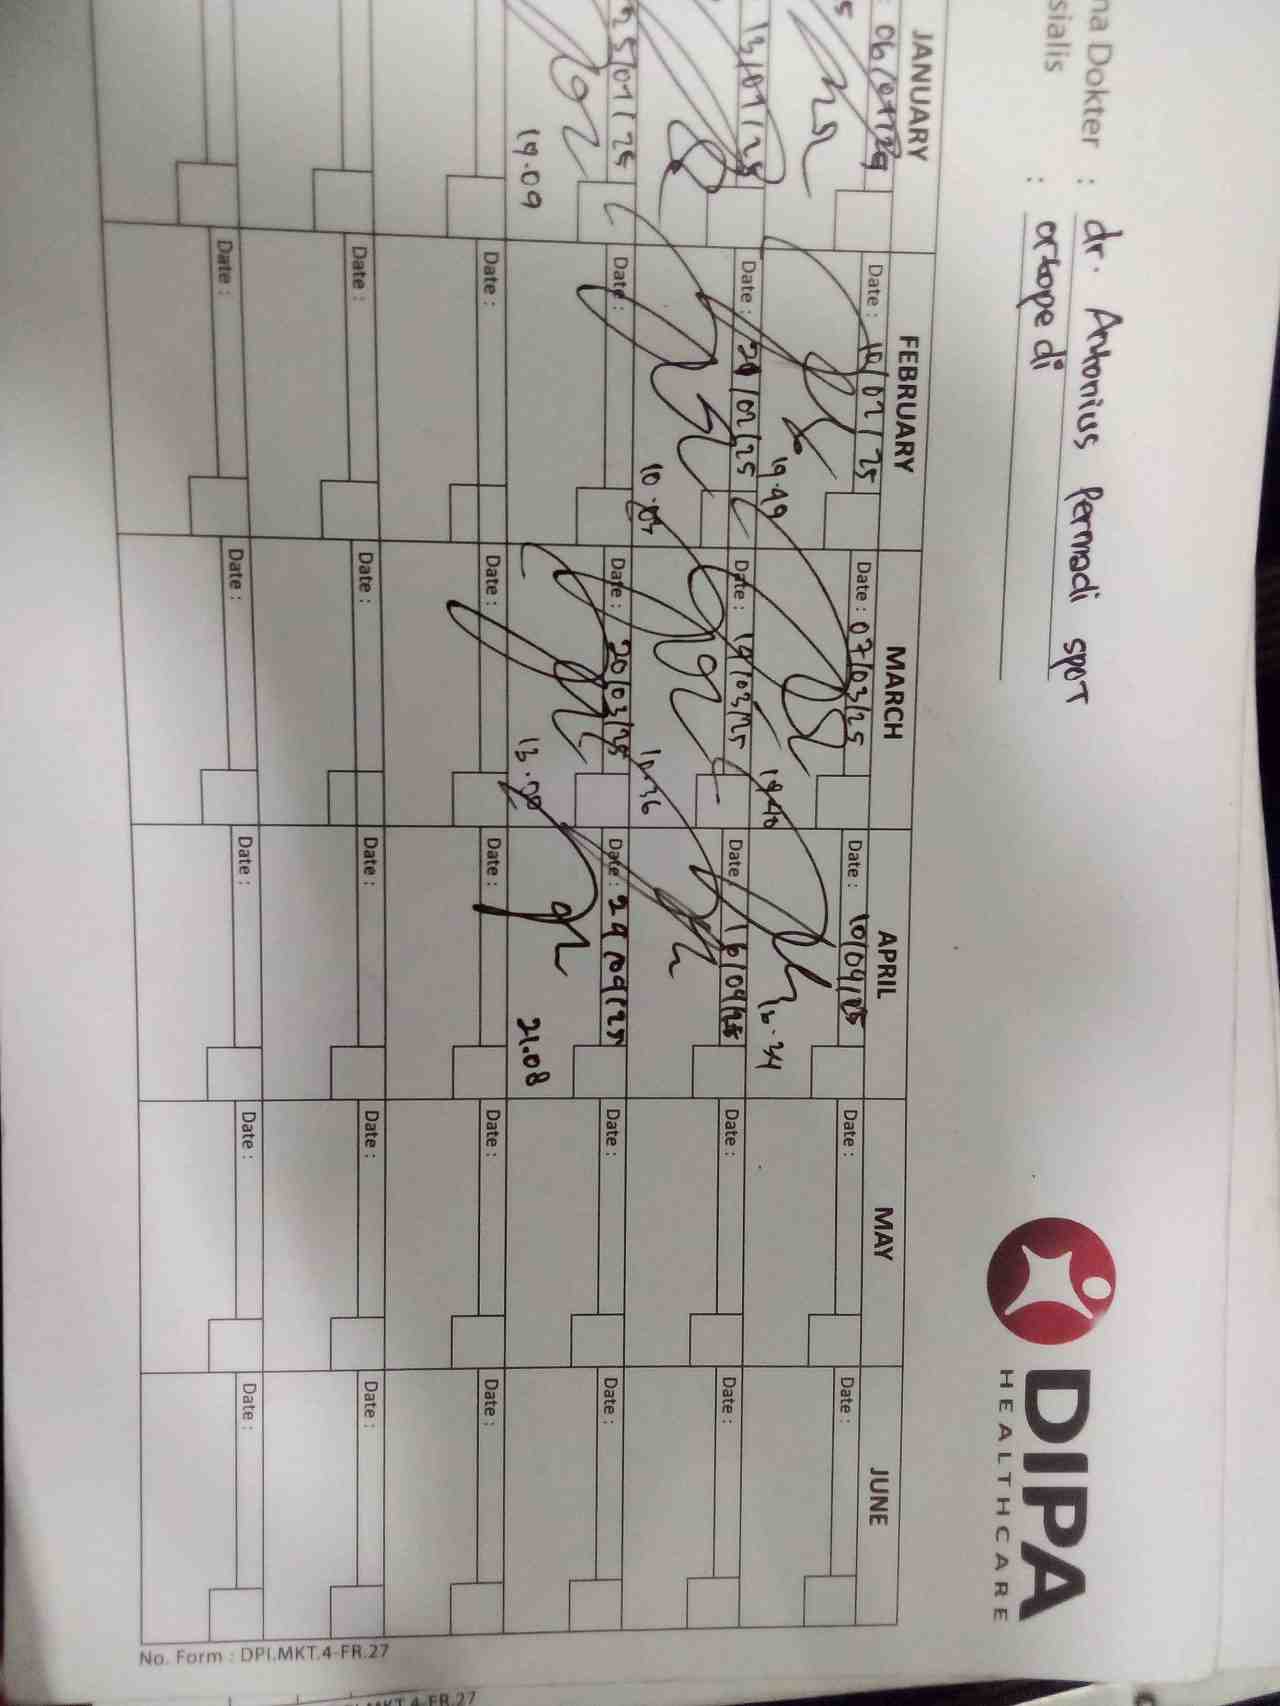 na Dokter : dr. Antonius Permadi spOT
sialis : ortopedi
DIPA
HEALTHCARE
JANUARY FEBRUARY MARCH APRIL MAY JUNE
Date : 10/02/25 Date : 07/03/25 Date : 10/04/25 Date : Date :
19.49 16.34
13/01/25 Date : 20/02/25 Date : 19/03/25 Date : 16/04/25 Date : Date :
10.07 10.36
25/01/25 Date : Date : 20/03/25 Date : 29/04/25 Date : Date :
19.09 13.00 21.08
Date : Date : Date : Date : Date :
Date : Date : Date : Date : Date :
Date : Date : Date : Date : Date :
No. Form : DPI.MKT.4-FR.27
MKT.4-FR.27